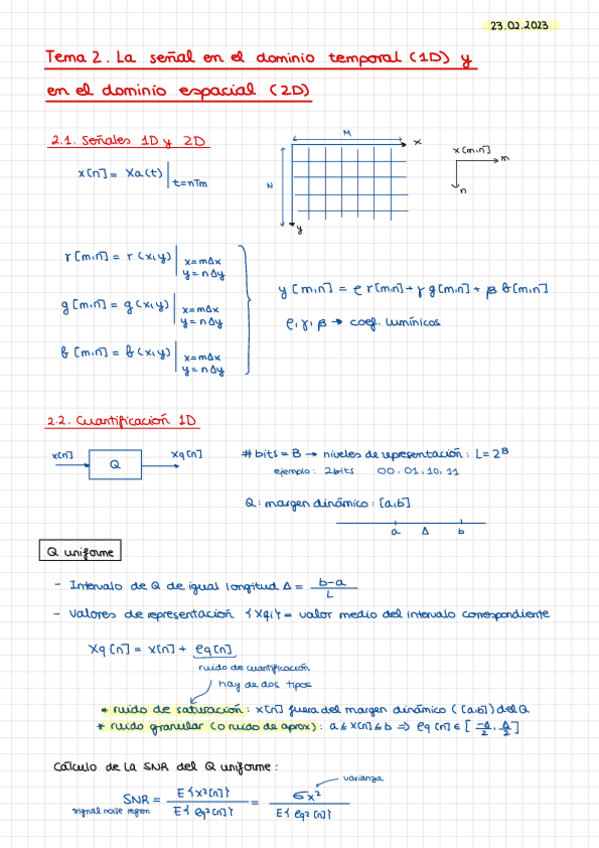 23.02.2023
Tema 2. La señal en el dominio temporal (1D) y
en el dominio espacial (2D)
2.1. Señales 1D y 2D
x[n] = Xa(t) | t=nTm
M
x
N
y
x[m,n]
m
n
r[m,n] = r(x,y) | x=mΔx
y=nΔy
g[m,n] = g(x,y) | x=mΔx
y=nΔy
b[m,n] = b(x,y) | x=mΔx
y=nΔy
y[m,n] = ρ r[m,n] + γ g[m,n] + β b[m,n]
ρ, γ, β → coef. lumínicos
2.2. Cuantificación 1D
x[n]
Q
Xq[n]
# bits = B → niveles de representación: L = 2^B
ejemplo: 2bits 00, 01, 10, 11
Q: margen dinámico: [a,b]
a Δ b
Q uniforme
- Intervalo de Q de igual longitud Δ = (b-a)/L
- Valores de representación {Xqi} = valor medio del intervalo correspondiente
Xq[n] = x[n] + eq[n]
ruido de cuantificación
hay de dos tipos
* ruido de saturación: x[n] fuera del margen dinámico ([a,b]) del Q
* ruido granular (o ruido de aprox): a ≤ x[n] ≤ b ⇒ eq[n] ∈ [-Δ/2, Δ/2]
Cálculo de la SNR del Q uniforme:
varianza
SNR = E{x²[n]} / E{eq²[n]} = σx² / E{eq²[n]}
signal noise region